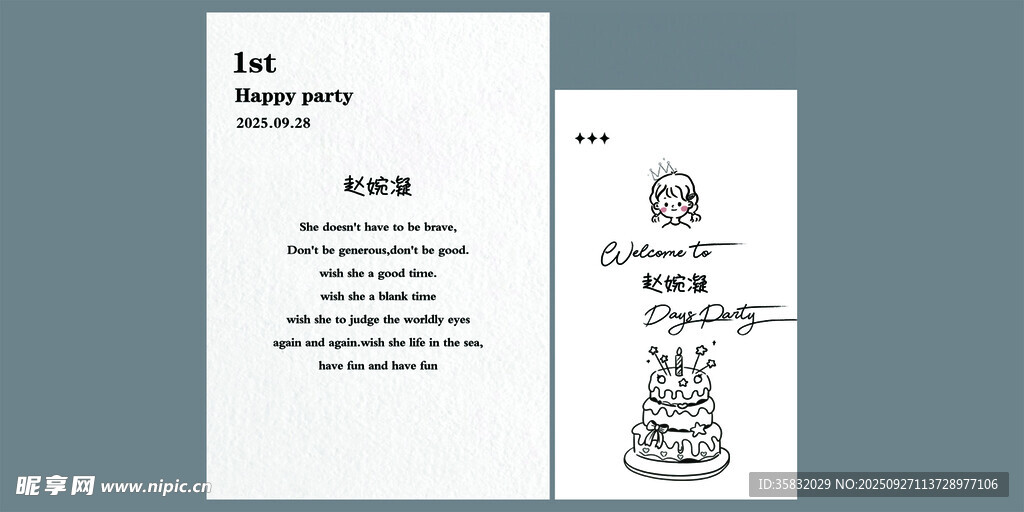 1st
Happy party
2025.09.28
赵婉凝
She doesn't have to be brave,
Don't be generous,don't be good.
wish she a good time.
wish she a blank time
wish she to judge the worldly eyes
again and again.wish she life in the sea,
have fun and have fun
Welcome to
赵婉凝
Days Party
昵享网 www.nipic.cn
ID:35832029 NO:20250927113728977106